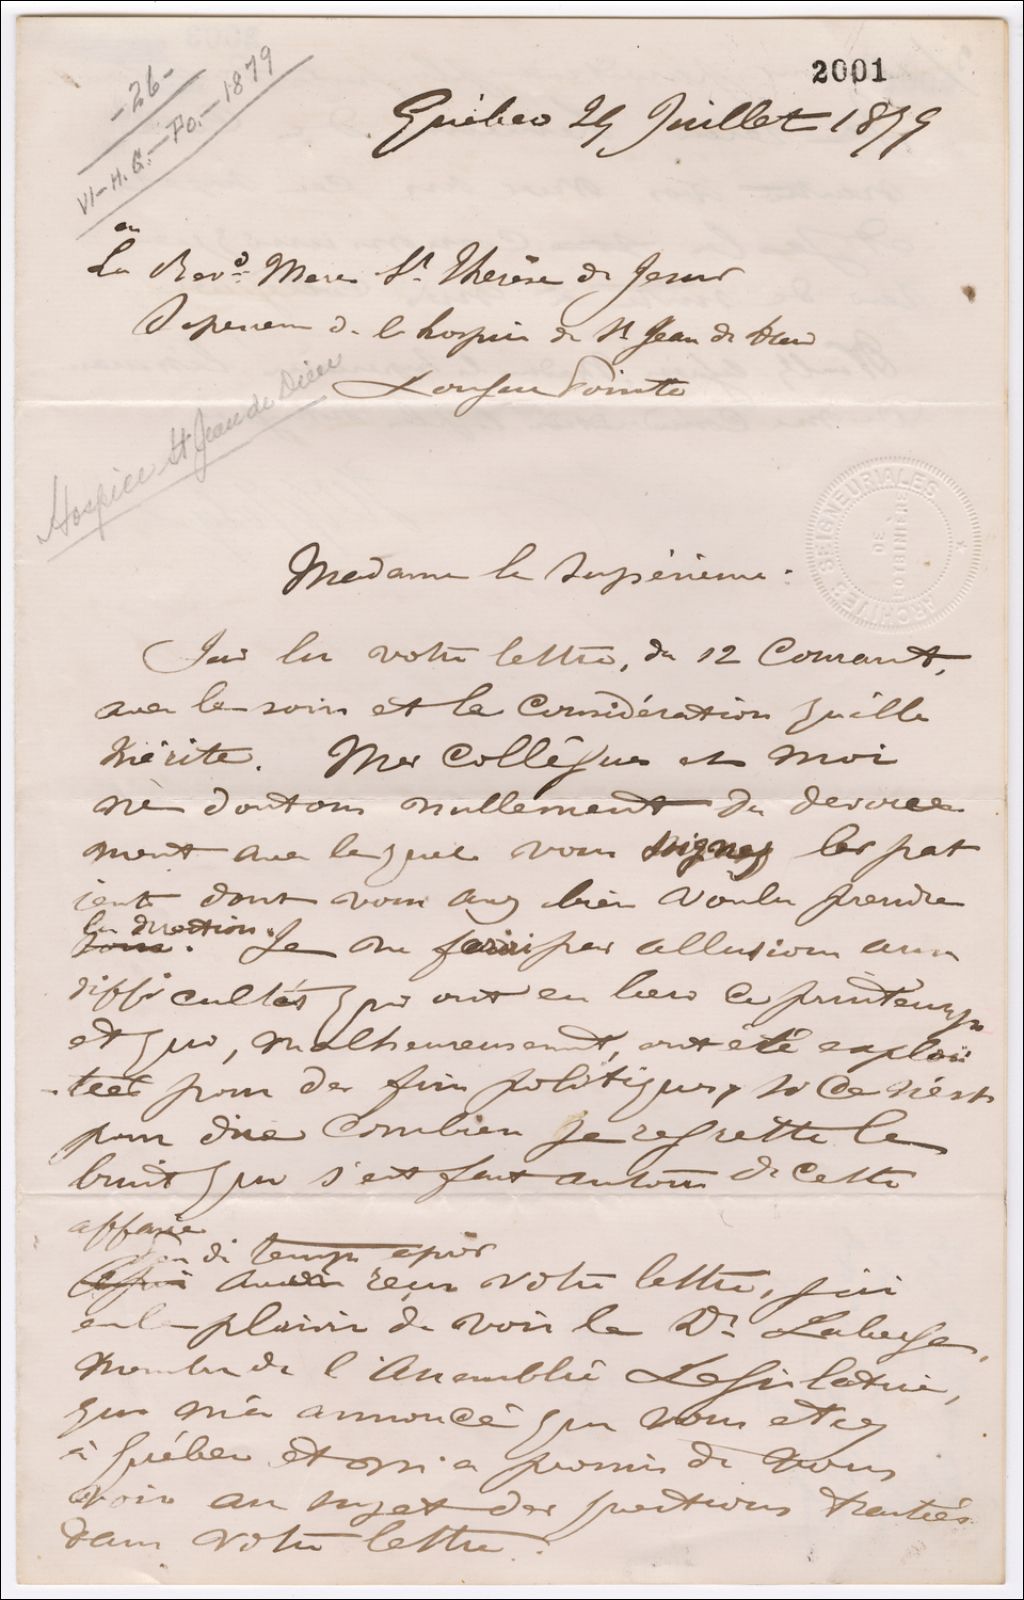 2001
-26-
VI-H.G.-Po.-1879
Québec 29 Juillet 1879
La Revde Mere St Thérèse de Jesus
Superieure de l hospice de St Jean de Dieu
Longue Pointe
Hospice St Jean de Dieu
ARCHIVES SEIGNEURIALES
DE
LOTBINIÈRE
Madame la Supérieure :
J'ai lu votre lettre, du 12 Courant,
avec le soin et la Considération qu'elle
mérite. Mes Collègues et moi
ne doutons nullement du devoue
ment avec lequel vous soignez les pat
ients dont vous avez bien voulu prendre
la direction. Je ne ferai pas allusion aux
difficultés qui ont eu lieu ce printemps
et qui, malheureusement, ont été exploi
tées pour des fins politiques, si ce n'est
pour dire Combien je regrette le
bruit qui s'est fait autour de cette
affaire
peu de temps après
avoir reçu votre lettre, j'ai
eu le plaisir de voir le Dr. Laberge,
membre de l'Assemblée Législative,
qui m'a annoncé que vous etiez
à Québec et m'a promis de vous
voir au sujet des questions traitées
dans votre lettre.